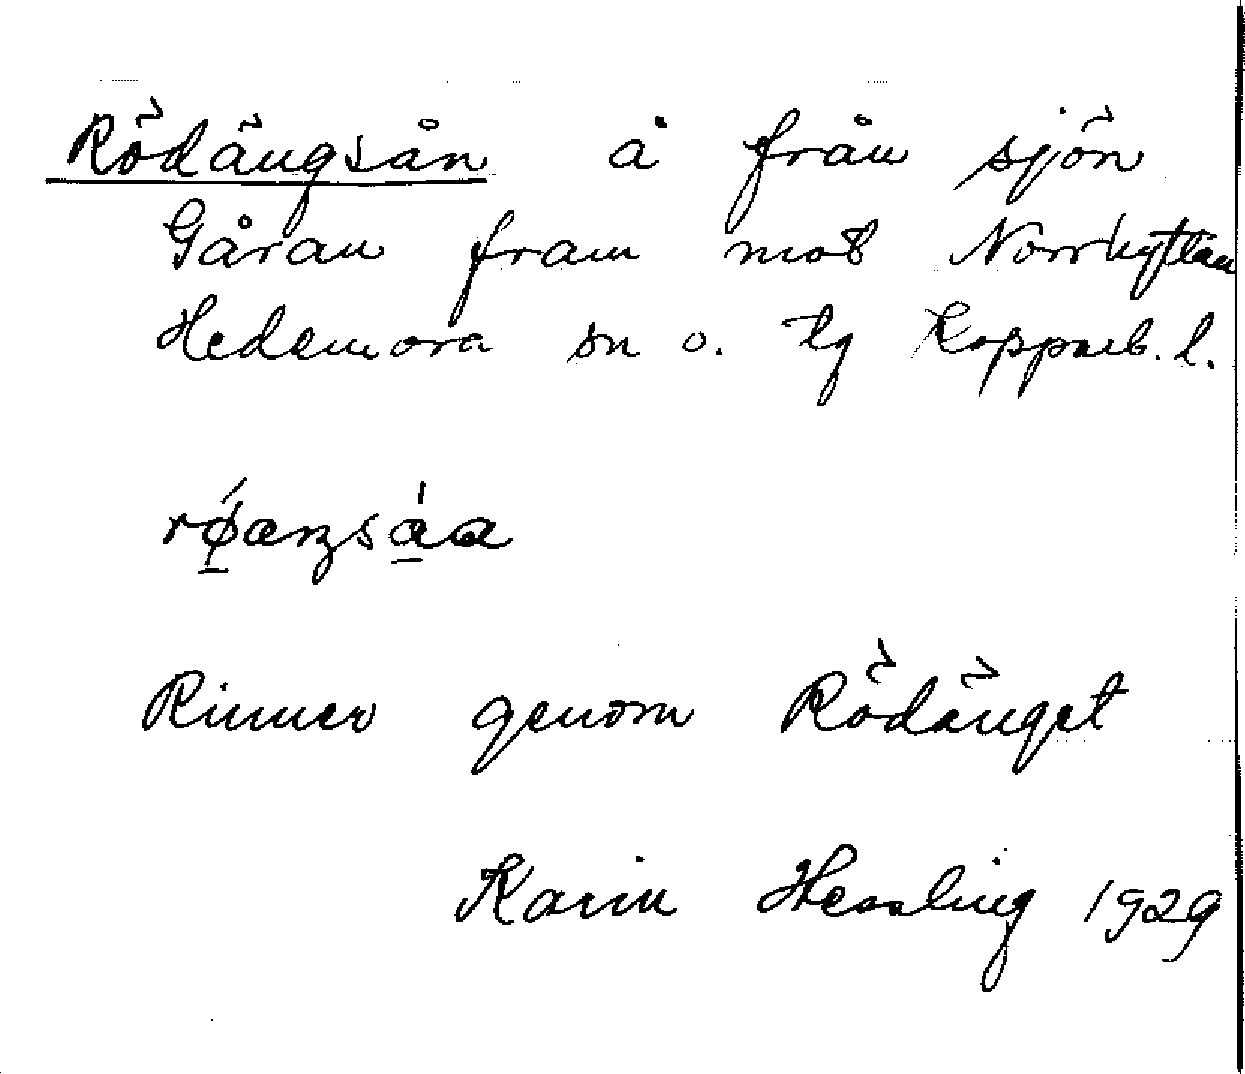 Rödängsån å från sjön
Gåran fram mot Norrhyttan
Hedemora sn o. tg Kopparb. l.
Rinner genom Rödänget
Karin Hessling 1929